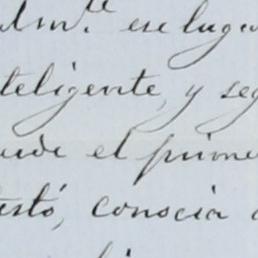 ese luga
teligente, y seg
el prime
estó, conocia